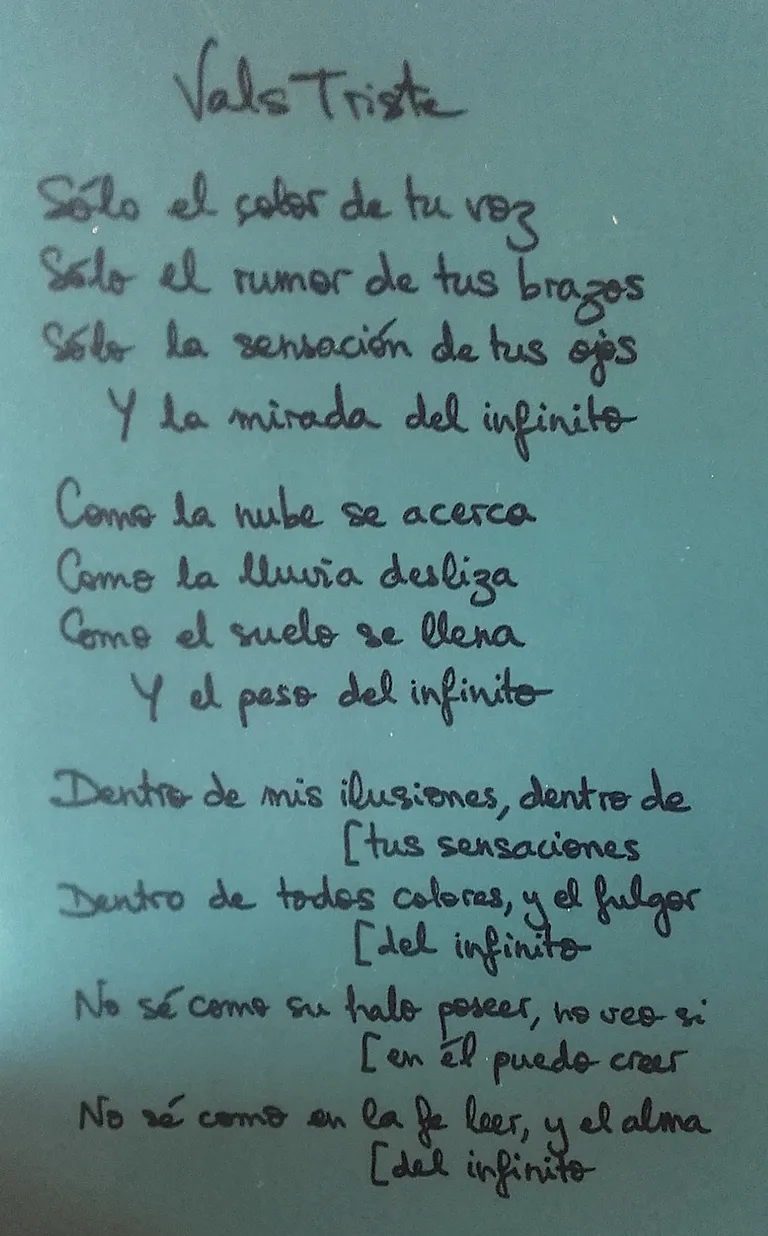 Vals Triste
Sólo el color de tu voz
Sólo el rumor de tus brazos
Sólo la sensación de tus ojos
Y la mirada del infinito
Como la nube se acerca
Como la lluvia desliza
Como el suelo se llena
Y el peso del infinito
Dentro de mis ilusiones, dentro de
[tus sensaciones
Dentro de todos colores, y el fulgor
[del infinito
No sé como su halo poseer, no veo si
[en él puedo creer
No sé como en la fe leer, y el alma
[del infinito